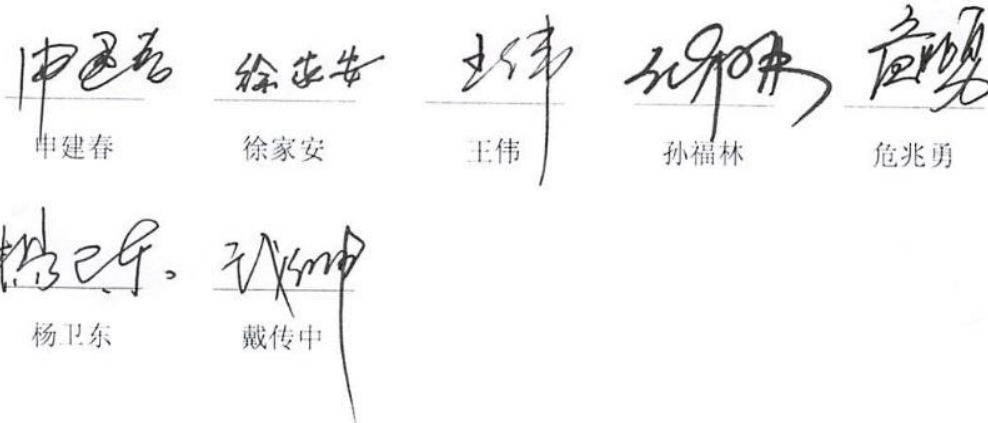 申建春 徐家安 王伟 孙福林 危兆勇
申建春 徐家安 王伟 孙福林 危兆勇
杨卫东 戴传中
杨卫东 戴传中